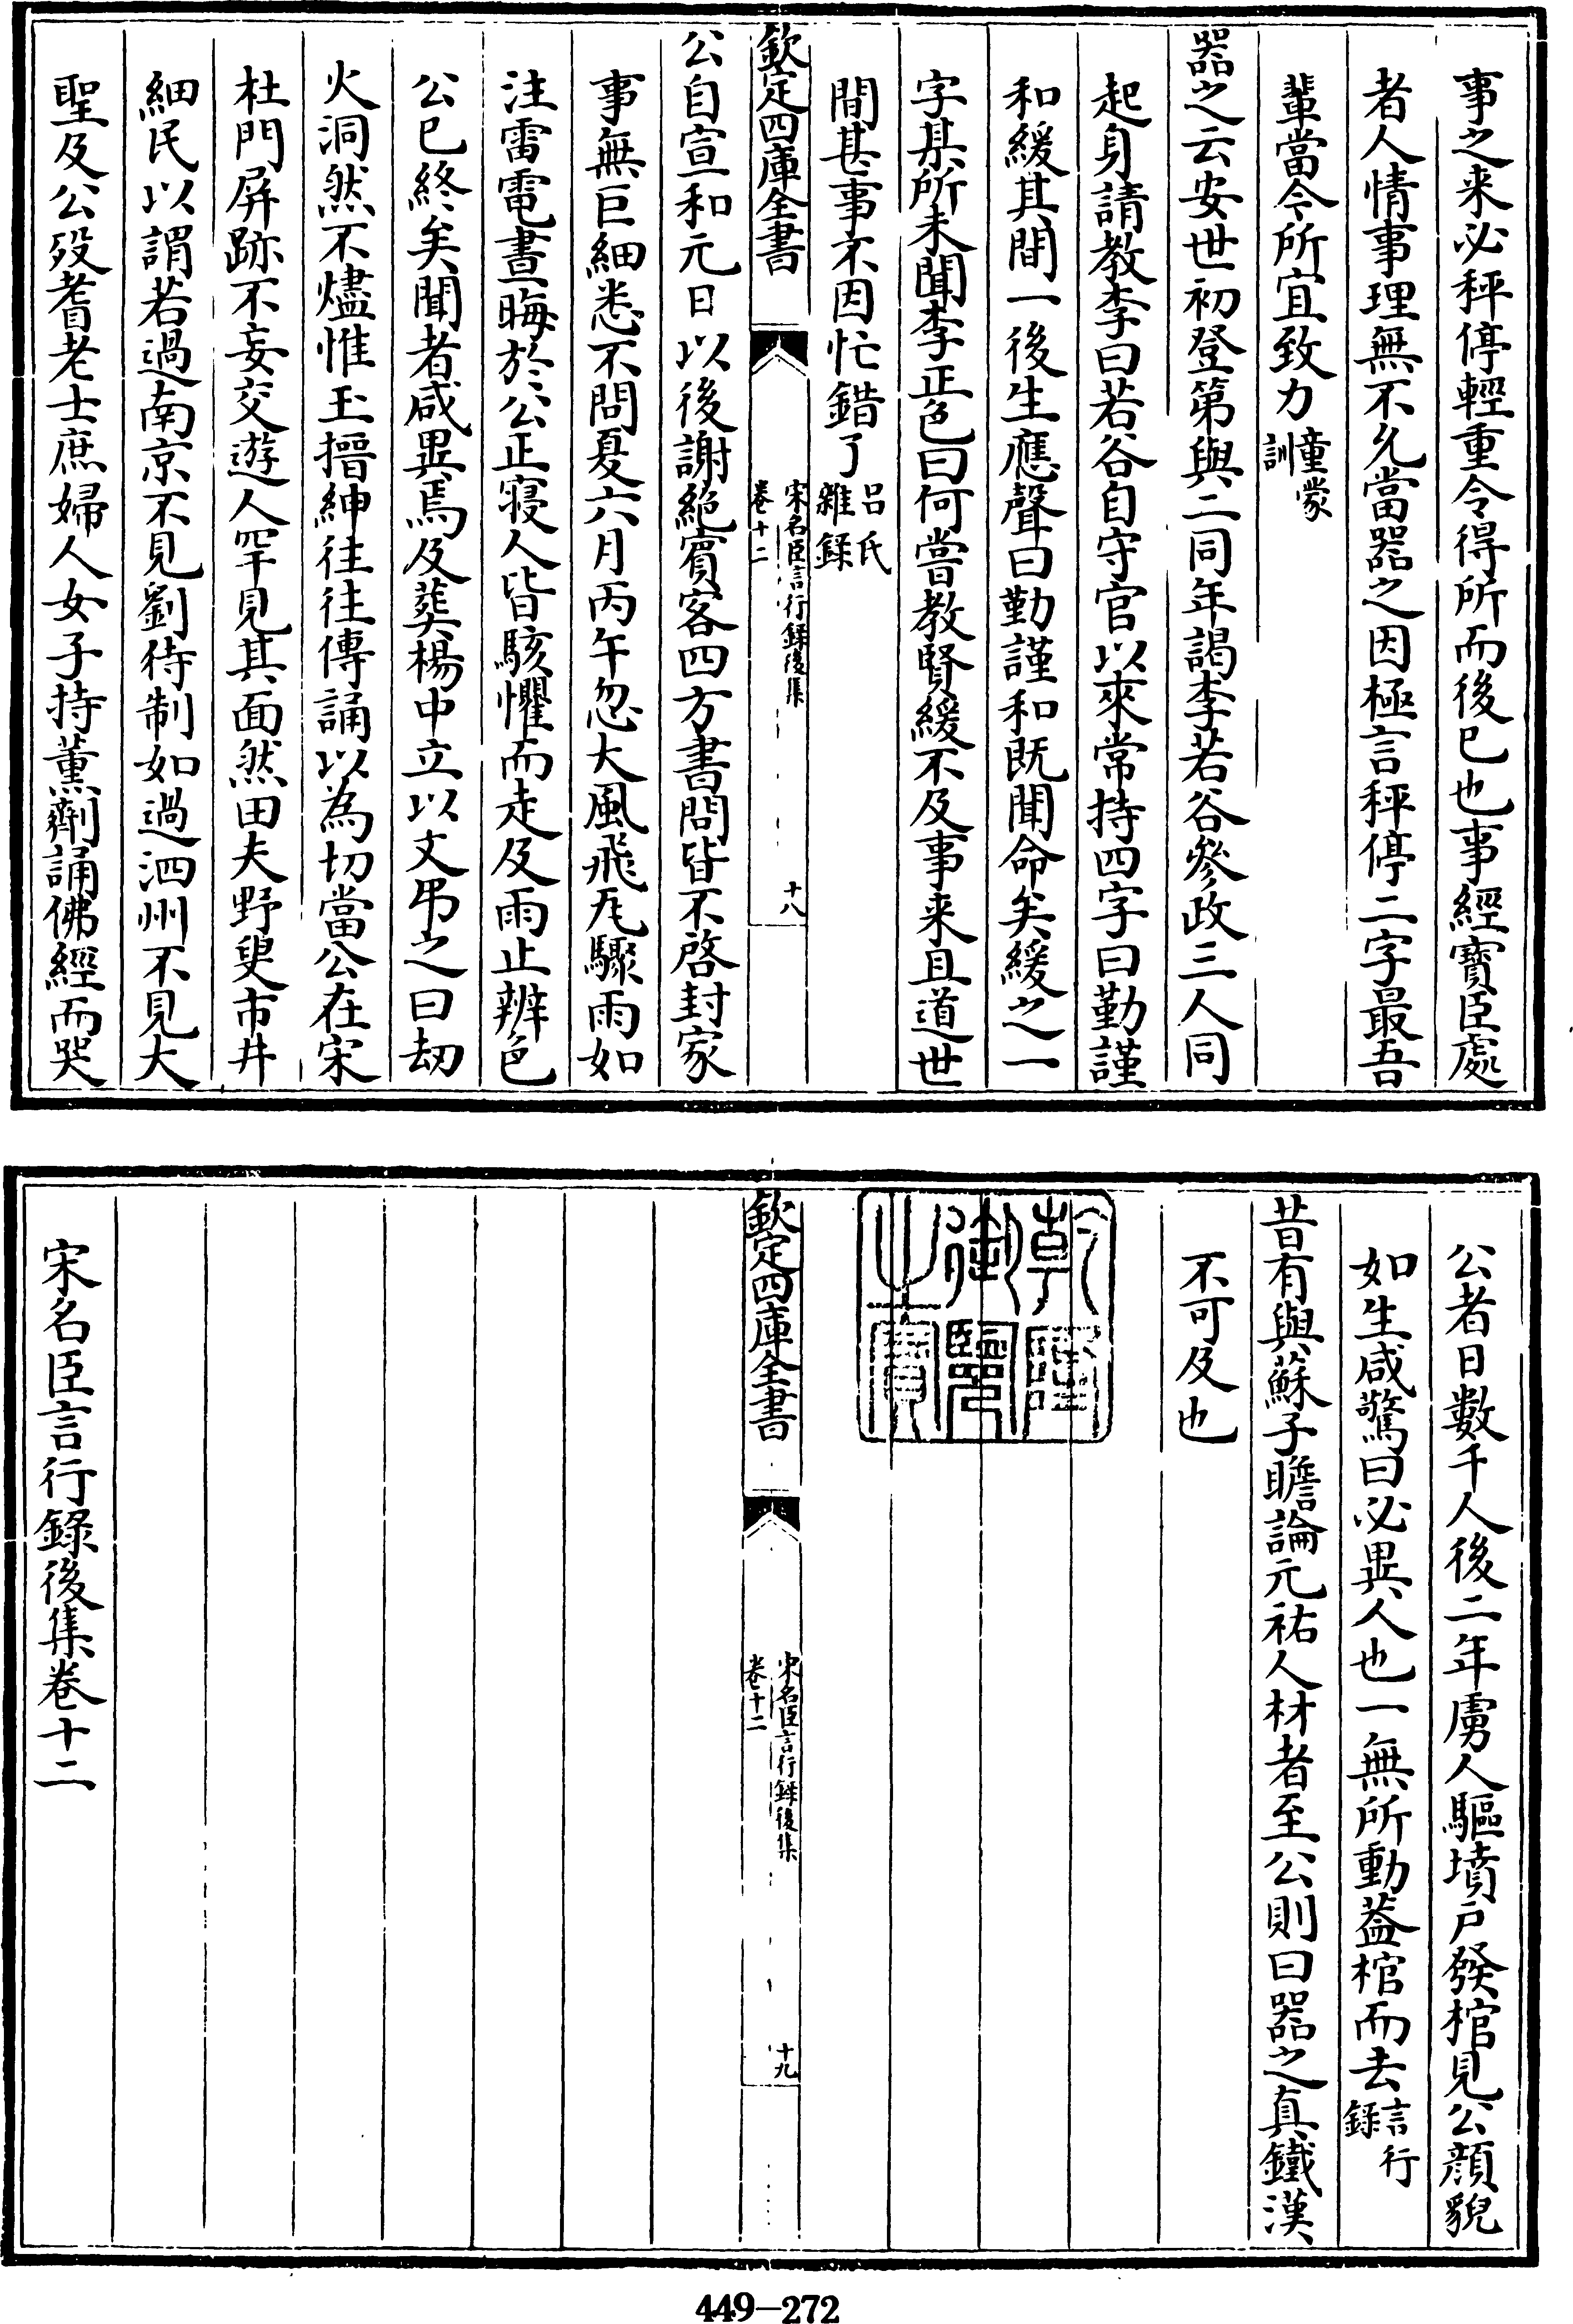 事之来必秤停輕重令得所而後已也事經寶臣處
者人情事理無不允當器之因極言秤停二字最吾
輩當今所宜致力童蒙訓
器之云安世初登第與二同年謁李若谷參政三人同
起身請教李曰若谷自守官以來常持四字曰勤謹
和緩其間一後生應聲曰勤謹和既聞命矣緩之一
字某所未聞李正色曰何嘗教賢緩不及事来且道世
間甚事不因忙錯了吕氏雜録
欽定四庫全書
宋名臣言行録後集
卷十二
十八
公自宣和元日以後謝絶賓客四方書問皆不啓封家
事無巨細悉不問夏六月丙午忽大風飛瓦驟雨如
注雷電晝晦於公正寢人皆駭懼而走及雨止辨色
公已終矣聞者咸異焉及葬楊中立以文弔之曰刼
火洞然不燼惟玉搢紳往往傳誦以為切當公在宋
杜門屏跡不妄交遊人罕見其面然田夫野叟市井
細民以謂若過南京不見劉待制如過泗州不見大
聖及公殁耆老士庶婦人女子持薰劑誦佛經而哭
公者日數千人後二年虜人驅墳户發棺見公顔貌
如生咸驚曰必異人也一無所動葢棺而去言行録
昔有與蘇子瞻論元祐人材者至公則曰器之真鐵漢
不可及也
乾隆御覽之寶
欽定四庫全書
宋名臣言行録後集
卷十二
十九
宋名臣言行錄後集卷十二
449-272